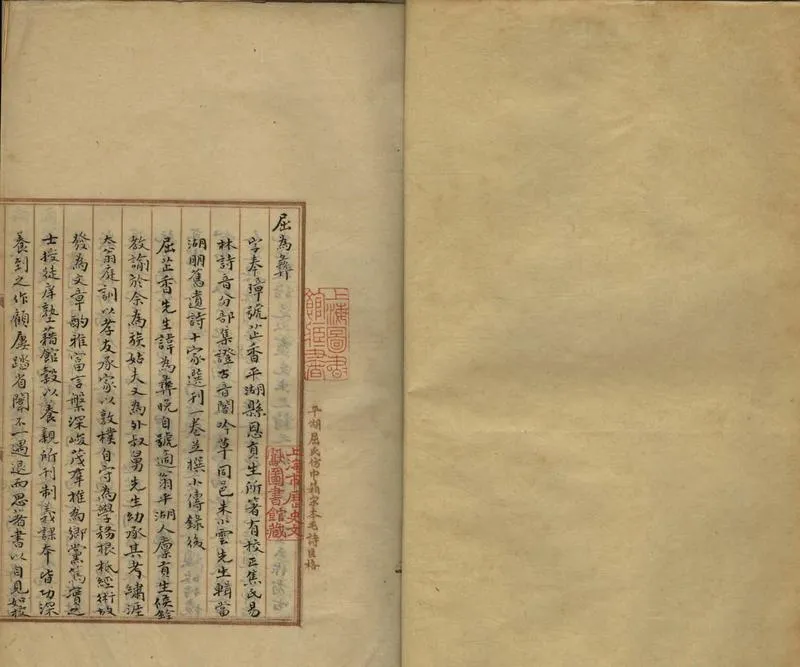 屈為彝
字奉璋號芷香平湖縣恩貢生所著有校正焦氏易
林詩音分部集證古音閣吟草同邑朱小雲先生輯當
湖朋舊遺詩十家選刊一卷並撰小傳錄後
屈芷香先生諱為彝晚自號適翁平湖人廩貢生候銓
教諭於余為族姑夫又為外叔舅先生幼承其考繡涯
叁翁庭訓以孝友承家以敦樸自守為學務根柢經術故
發為文章酌雅富言槃深峻茂羣推為鄉黨篤實之
士授徒庠塾藉館穀以養親所刊制義課本皆功深
養到之作顧屢踏省闈不一遇退而思著書以自見如校
上海圖書館藏書
上海市歷史文獻圖書館藏
平湖屈氏仿巾箱宋本毛詩艮格